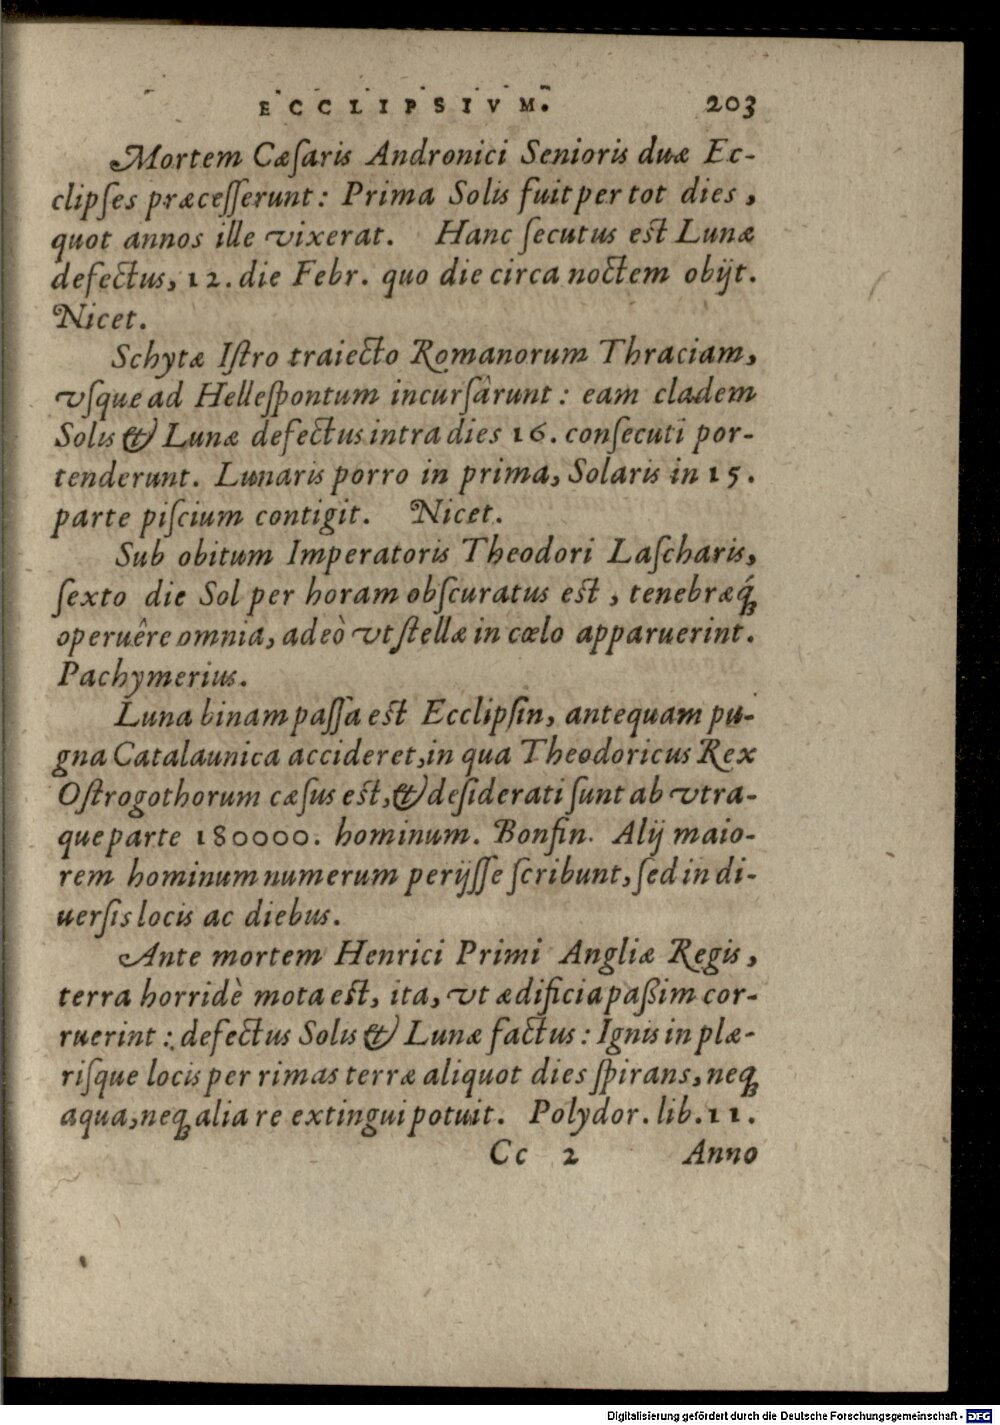 ECCLIPSIVM. 203
Mortem Cæſaris Andronici Senioris duæ Ec-
clipſes præceſſerunt: Prima Solis fuit per tot dies,
quot annos ille vixerat. Hanc ſecutus eſt Lunæ
defectus, 12. die Febr. quo die circa noctem obijt.
Nicet.
Schytæ Iſtro traiecto Romanorum Thraciam,
vſque ad Helleſpontum incurſârunt: eam cladem
Solis & Lunæ defectus intra dies 16. conſecuti por-
tenderunt. Lunaris porro in prima, Solaris in 15.
parte piſcium contigit. Nicet.
Sub obitum Imperatoris Theodori Laſcharis,
ſexto die Sol per horam obſcuratus eſt, tenebræq́;
operuêre omnia, adeò vt ſtellæ in cœlo apparuerint.
Pachymerius.
Luna binam paſſa eſt Ecclipſin, antequam pu-
gna Catalaunica accideret, in qua Theodoricus Rex
Oſtrogothorum cæſus eſt, & deſiderati ſunt ab vtra-
que parte 180000. hominum. Bonfin. Alij maio-
rem hominum numerum perijſſe ſcribunt, ſed in di-
uerſis locis ac diebus.
Ante mortem Henrici Primi Angliæ Regis,
terra horridè mota eſt, ita, vt ædificia paßim cor-
ruerint: defectus Solis & Lunæ factus: Ignis in plæ-
riſque locis per rimas terræ aliquot dies ſpirans, neq;
aqua, neq; alia re extingui potuit. Polydor. lib. 11.
Cc 2 Anno
Digitalisierung gefördert durch die Deutsche Forschungsgemeinschaft - DFG